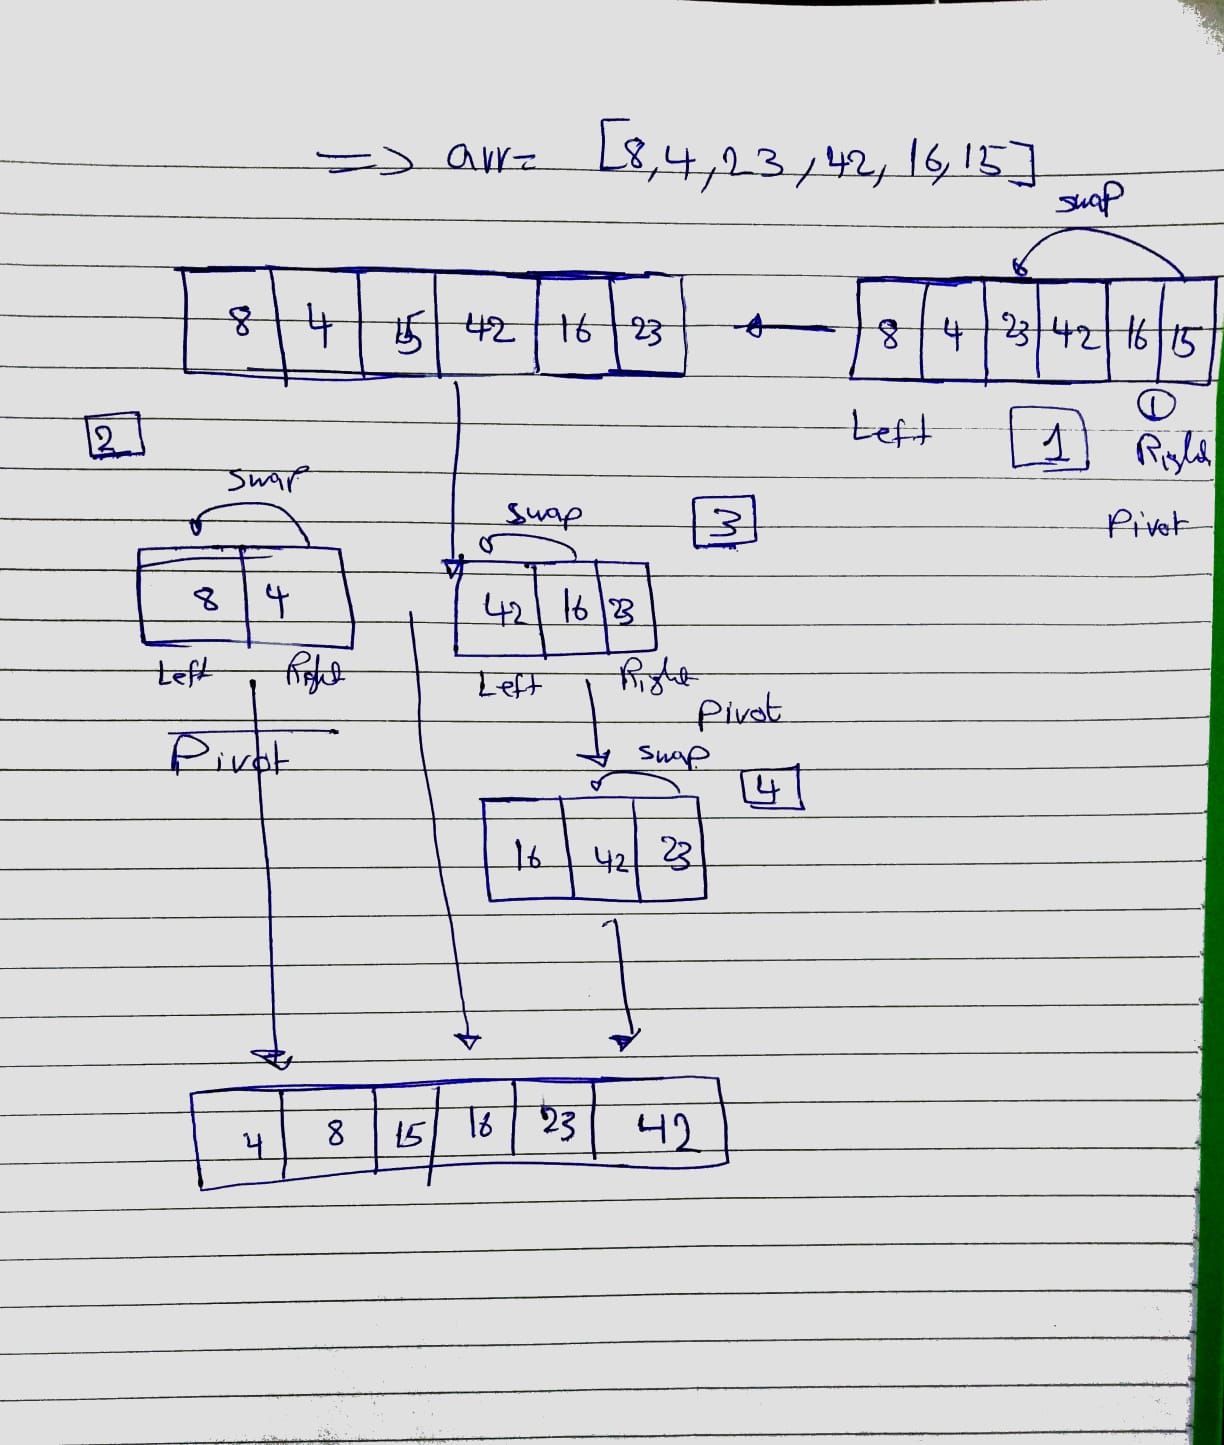 => arr = [8,4,23,42,16,15]
swap
8 4 15 42 16 23
8 4 23 42 16 15
1
Left 1 Right
Pivot
2
swap
8 4
Left Right
Pivot
swap 3
42 16 23
Left Right
Pivot
swap 4
16 42 23
4 8 15 16 23 42